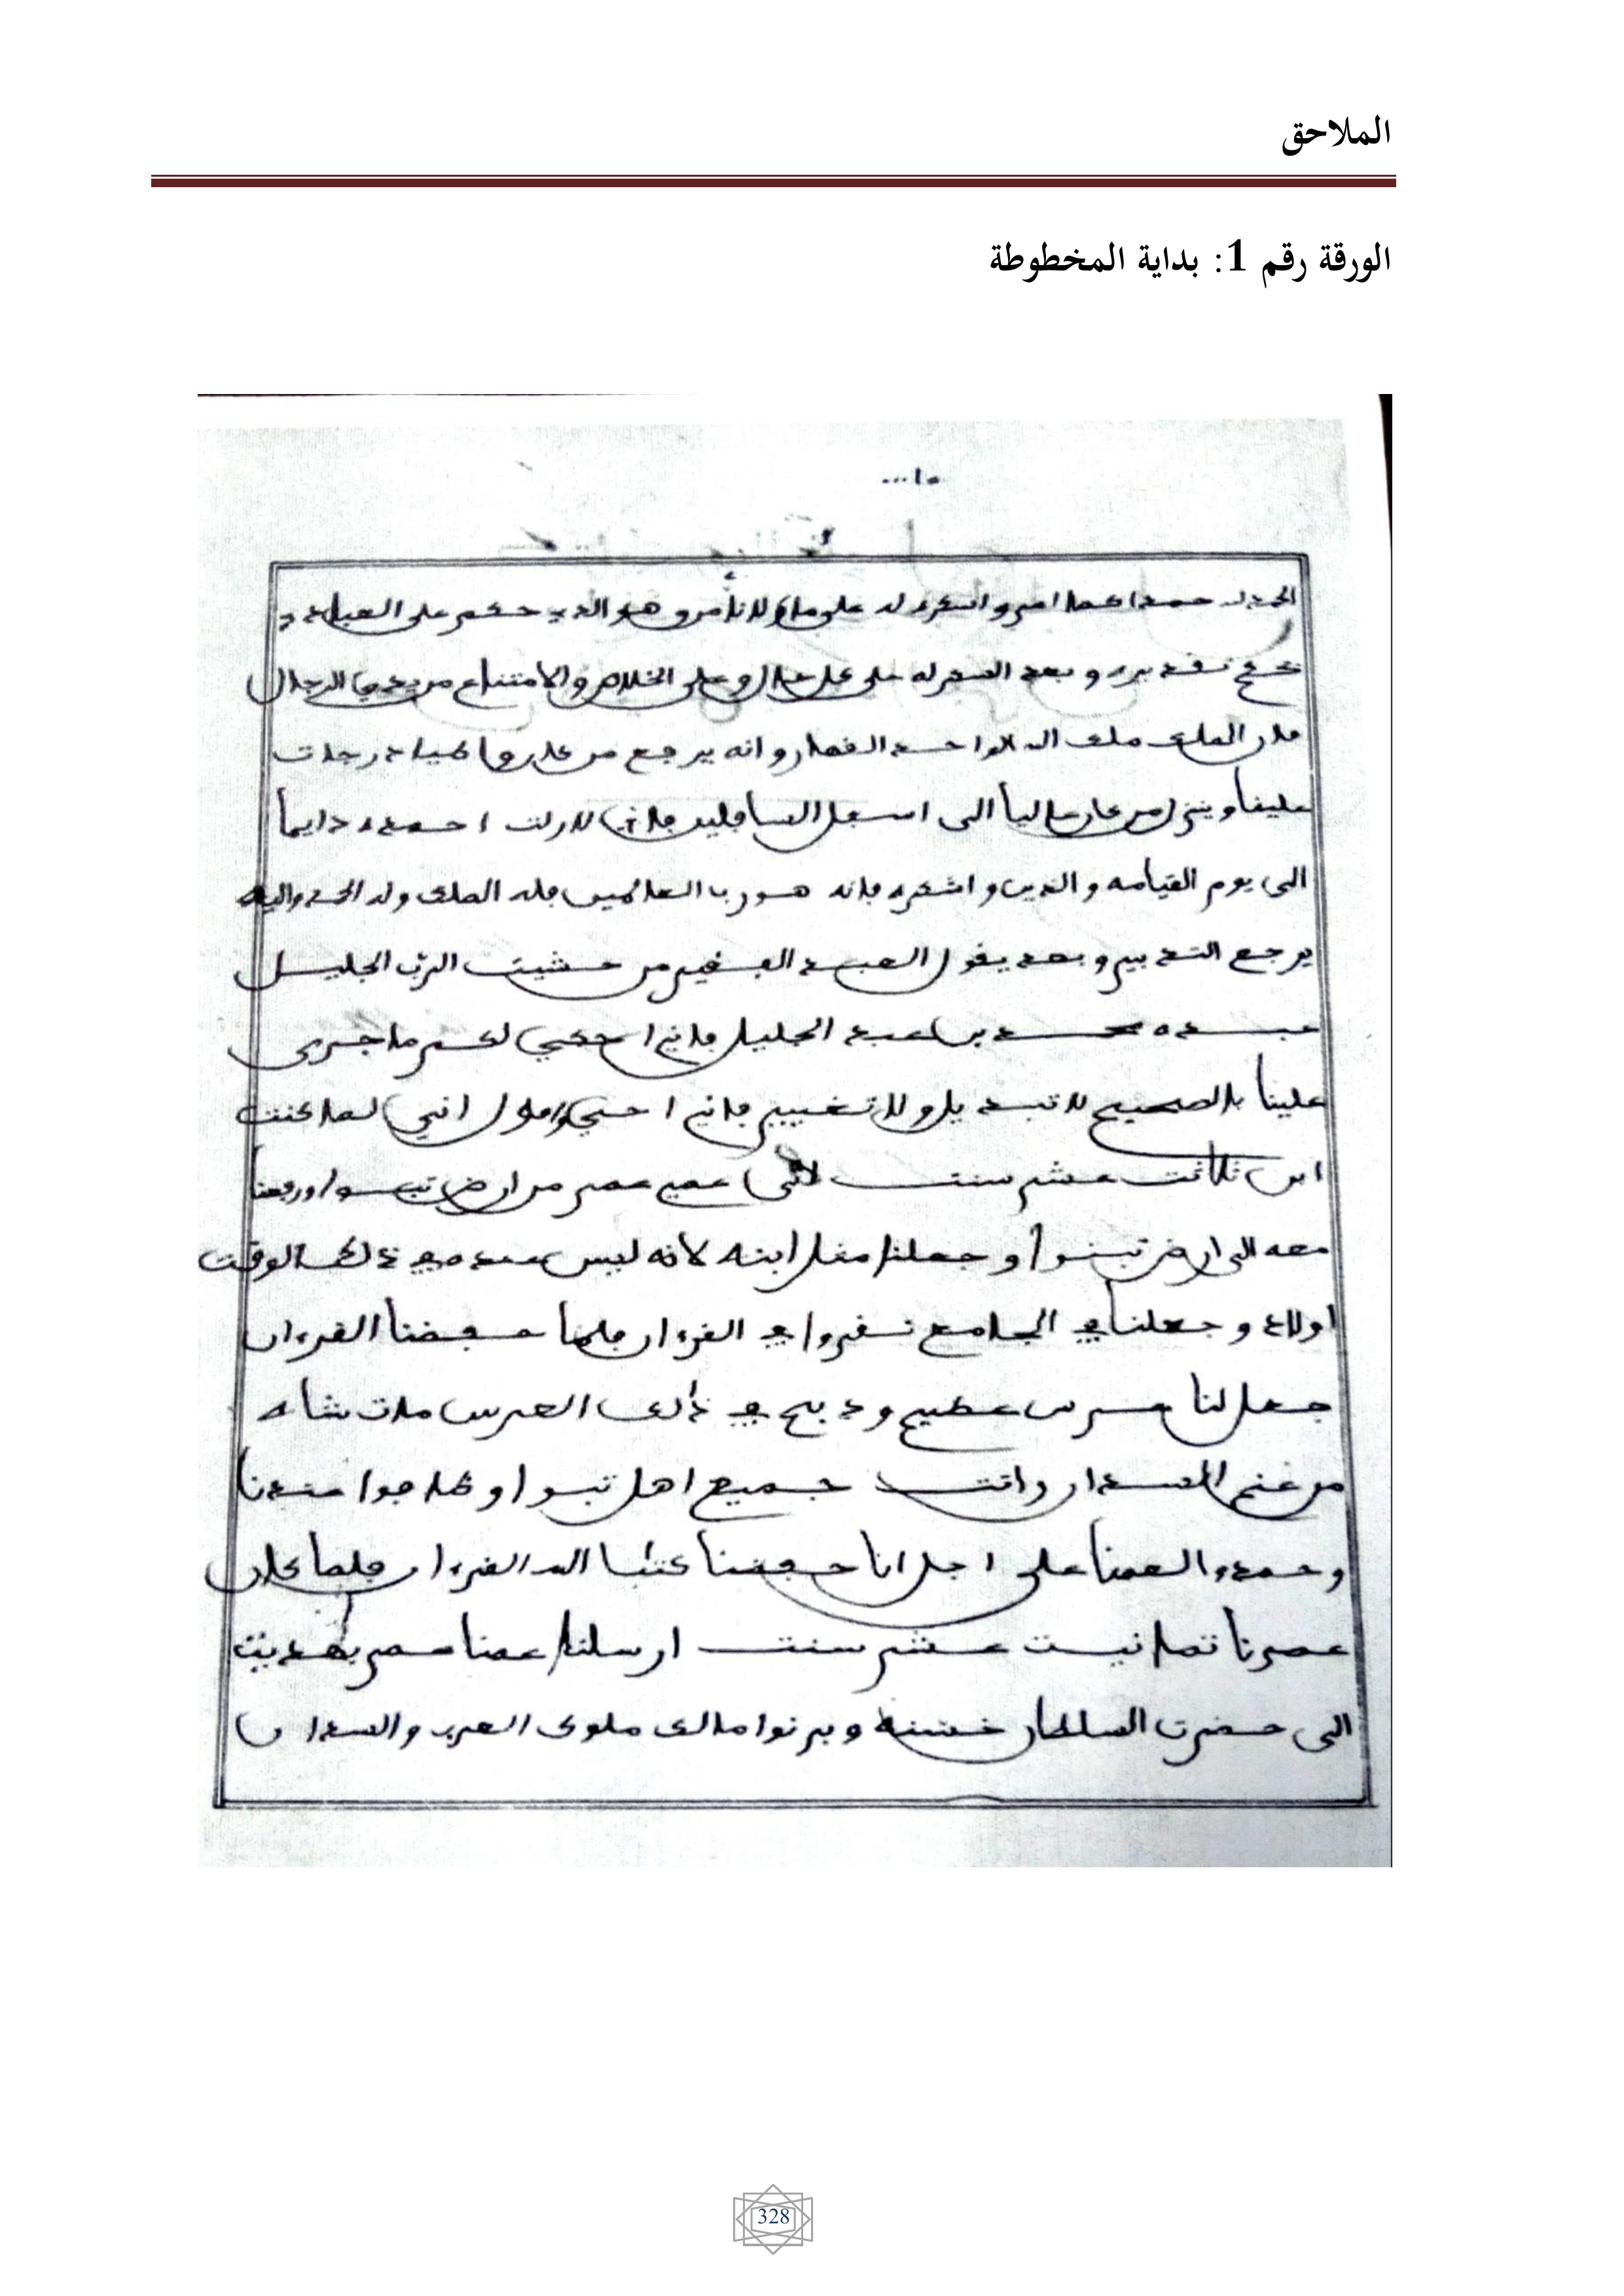 الملاحق
الورقة رقم 1: بداية المخطوطة
الحمد لله حمدا وهو الذي حكم على العباد
وبعد الشكر له على كل حال وعلى الخلاص والامتناع من الرجال
فان الملك ملك الله الواحد القهار وانه يرجع من كان درجات
عليها وينزل من كان عاليا الى اسفل السافلين فاني لازلت احمده دايما
الى يوم القيامه والدين واشكره فانه هو رب العالمين فله الملك وله الحمد واليه
يرجع التدبير وبعد يقول العبد الفقير من خشيت الرب الجليل
عبده محمد بن عبد الجليل فاني احكي لكم ما جرى
علينا بالصحيح لا تبديل ولا تغيير فاني احكي واقول اني لما كنت
ابن ثلاثت عشر سنت عمي عمر من ارض تبسوا ورفعنا
معه الى ارض تبسوا وجعلنا مثل ابنه لانه ليس عنده في ذلك الوقت
اولاد وجعلنا في الجامع نقروا في القرءان فلما حفضنا القرءان
جعل لنا عرس عظيم ودبح في ذلك العرس مات شاه
من غنم السودان واتت جميع اهل تبسوا وفاجوا عندنا
وحمدو العمنا على اجل انا حفضنا كتاب الله القرءان فلما كان
عمرنا تمانيت عشر سنت ارسلنا عمنا عمر بهديت
الى حضرت السلطان خشنه وبرنوا مالك ملوك العرب والسودان
328